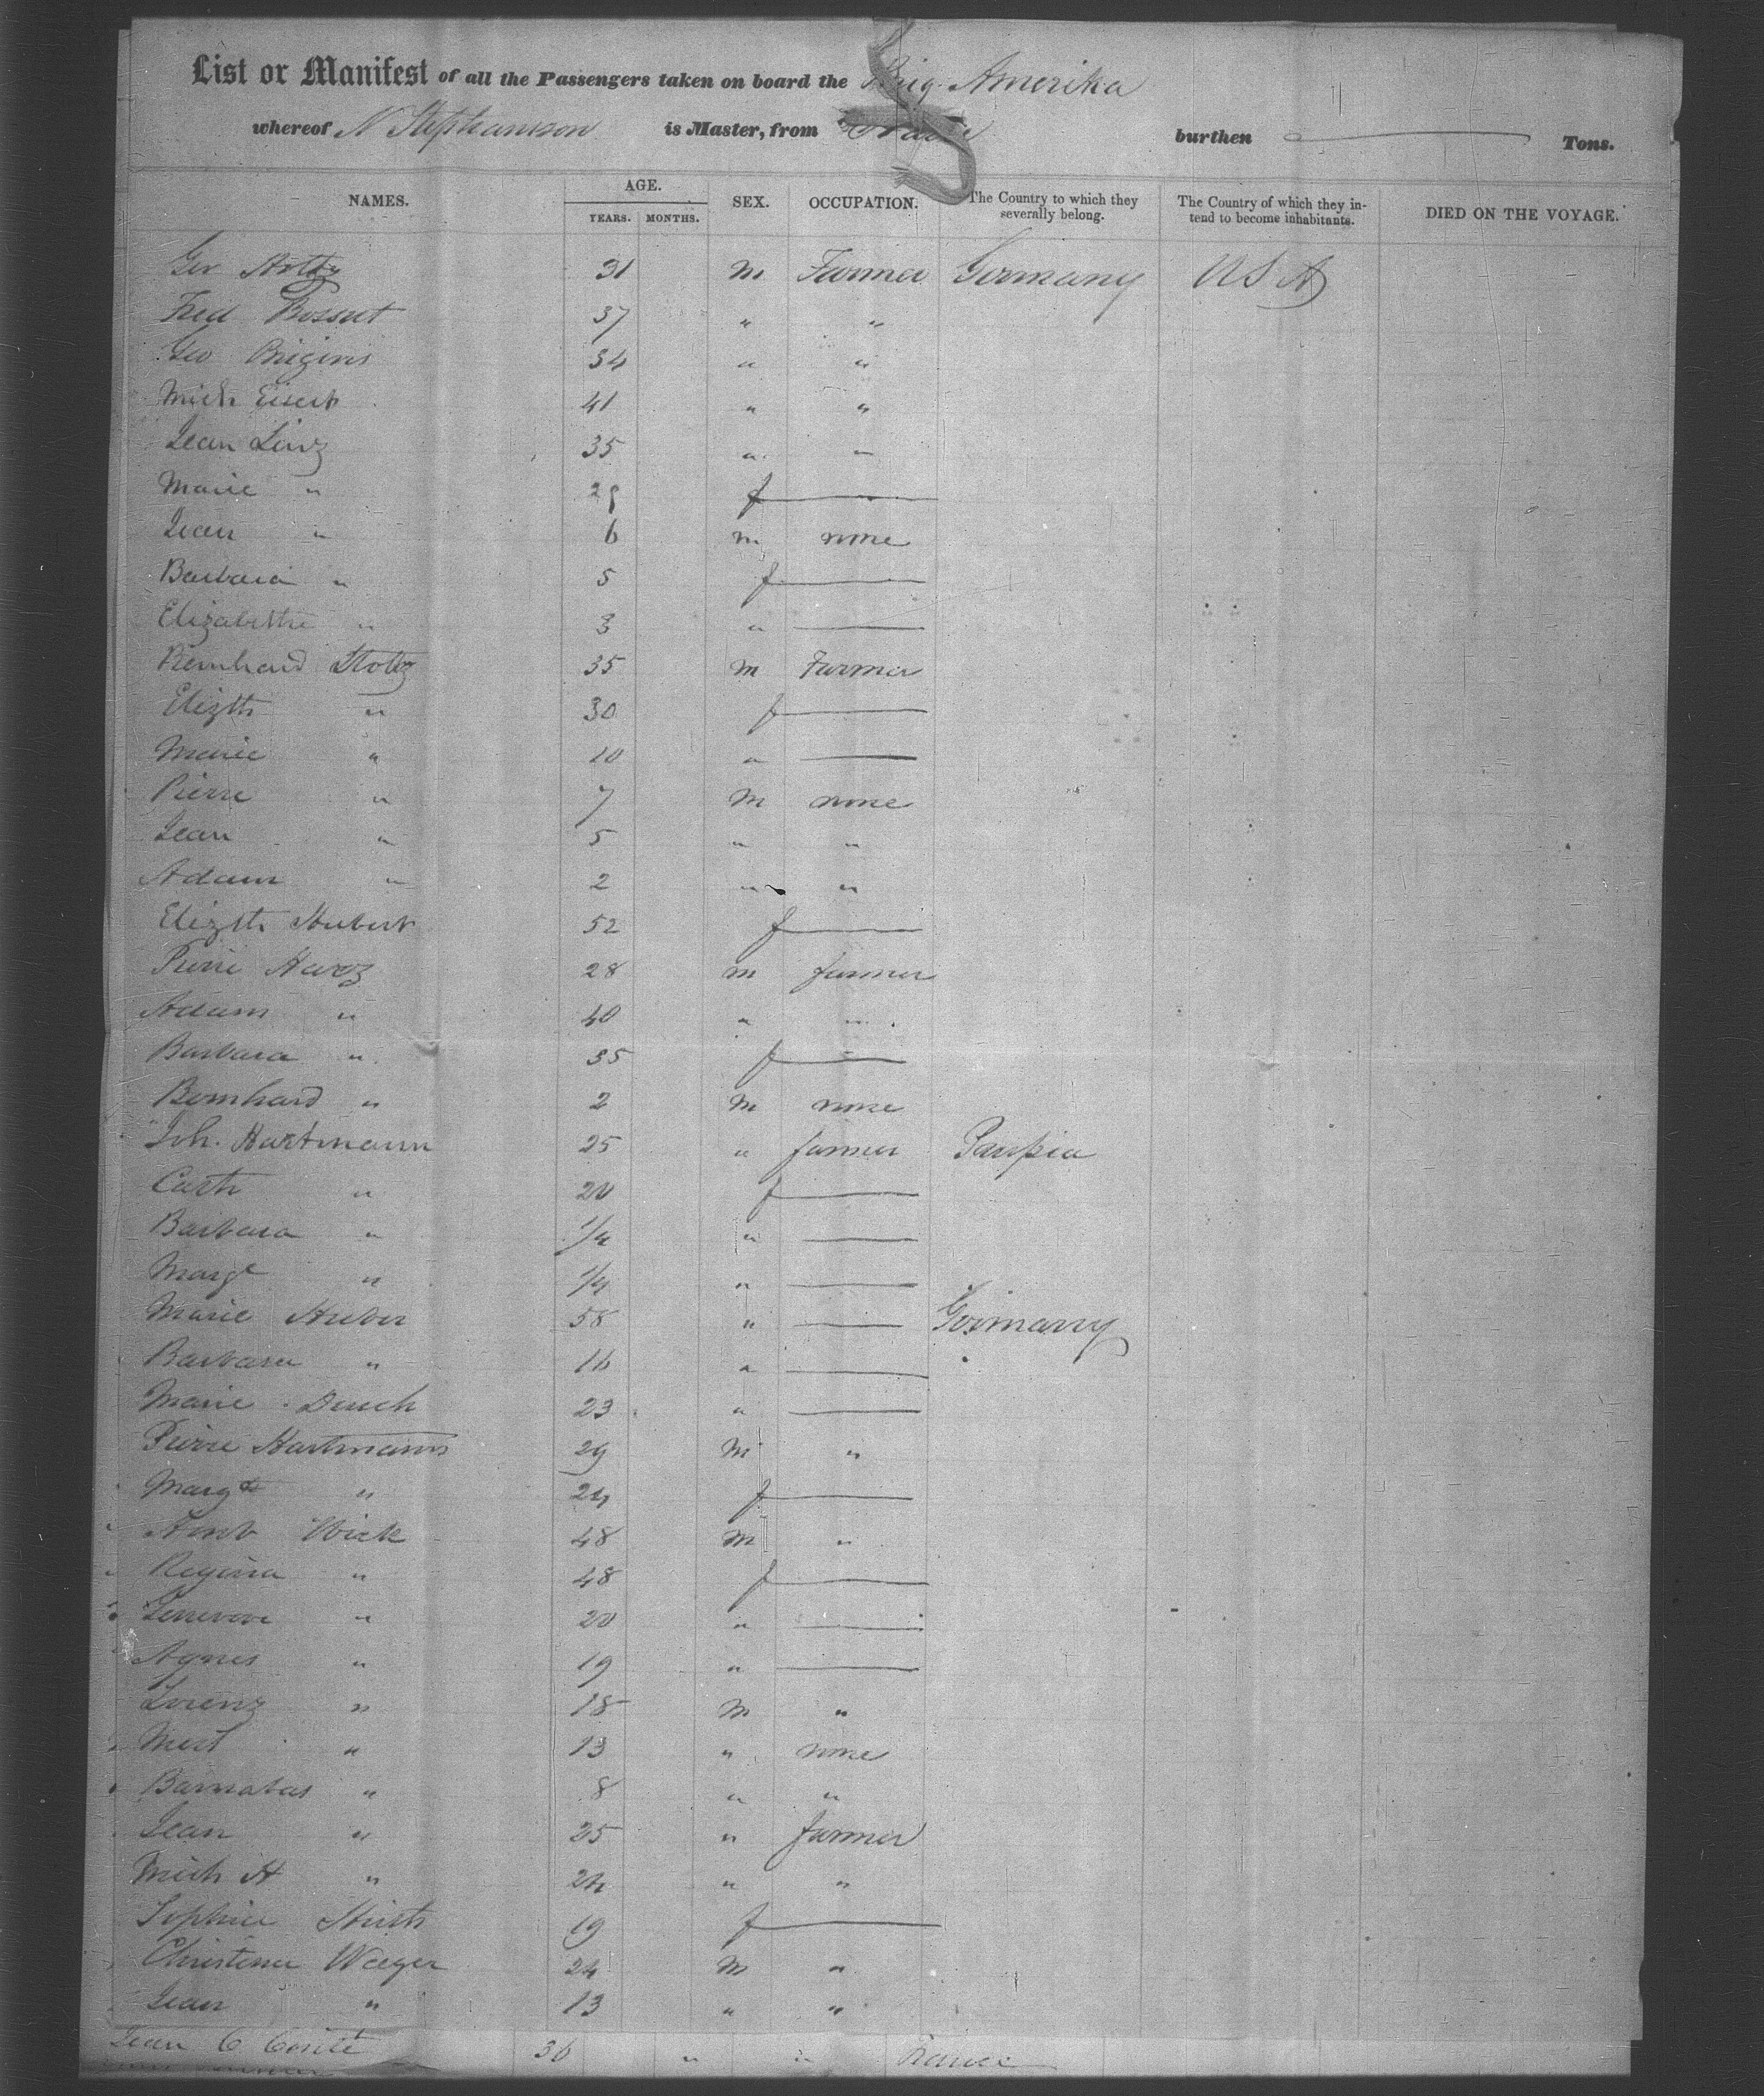 List or Manifest of all the Passengers taken on board the Brig Amerika
whereof N Stephanson is Master, from burthen Tons.
NAMES. AGE. YEARS. MONTHS. SEX. OCCUPATION. The Country to which they severally belong. The Country of which they intend to become inhabitants. DIED ON THE VOYAGE.
Geo 31 m Farmer Germany USA
Fred Bossut 37 " "
Geo 34 " "
Mich 41 " "
Jean 35 " "
Marie " 29 f
Jean " 6 m none
Barbara " 5 f
Elizabethe " 3 "
Bernhard Stoltz 35 m Farmer
Elizth " 30 f
Marie " 10 "
Pierre " 7 m none
Jean " 5 " "
Adam " 2 " "
Elizth Hubert 52 f
Pierre 28 m farmer
Adam " 40 " "
Barbara " 35 f
Bernhard " 2 m none
Joh. Hartmann 25 " farmer
Cath " 20 f
Barbara " 1/4 "
Margt " 1/4 "
Marie Huber 58 " Germany
Barbara " 16 "
Marie 23 "
Pierre Hartmann 29 m "
Margt " 24 f
48 m "
Regina " 48 f
" 20 "
Agnes " 19 "
Lorenz " 18 m "
" 13 " none
Barnabas " 8 " "
Jean " 25 " farmer
Mich A " 24 " "
Sophie 19 f
24 m "
Jean " 13 " "
Jean C 36 " " France